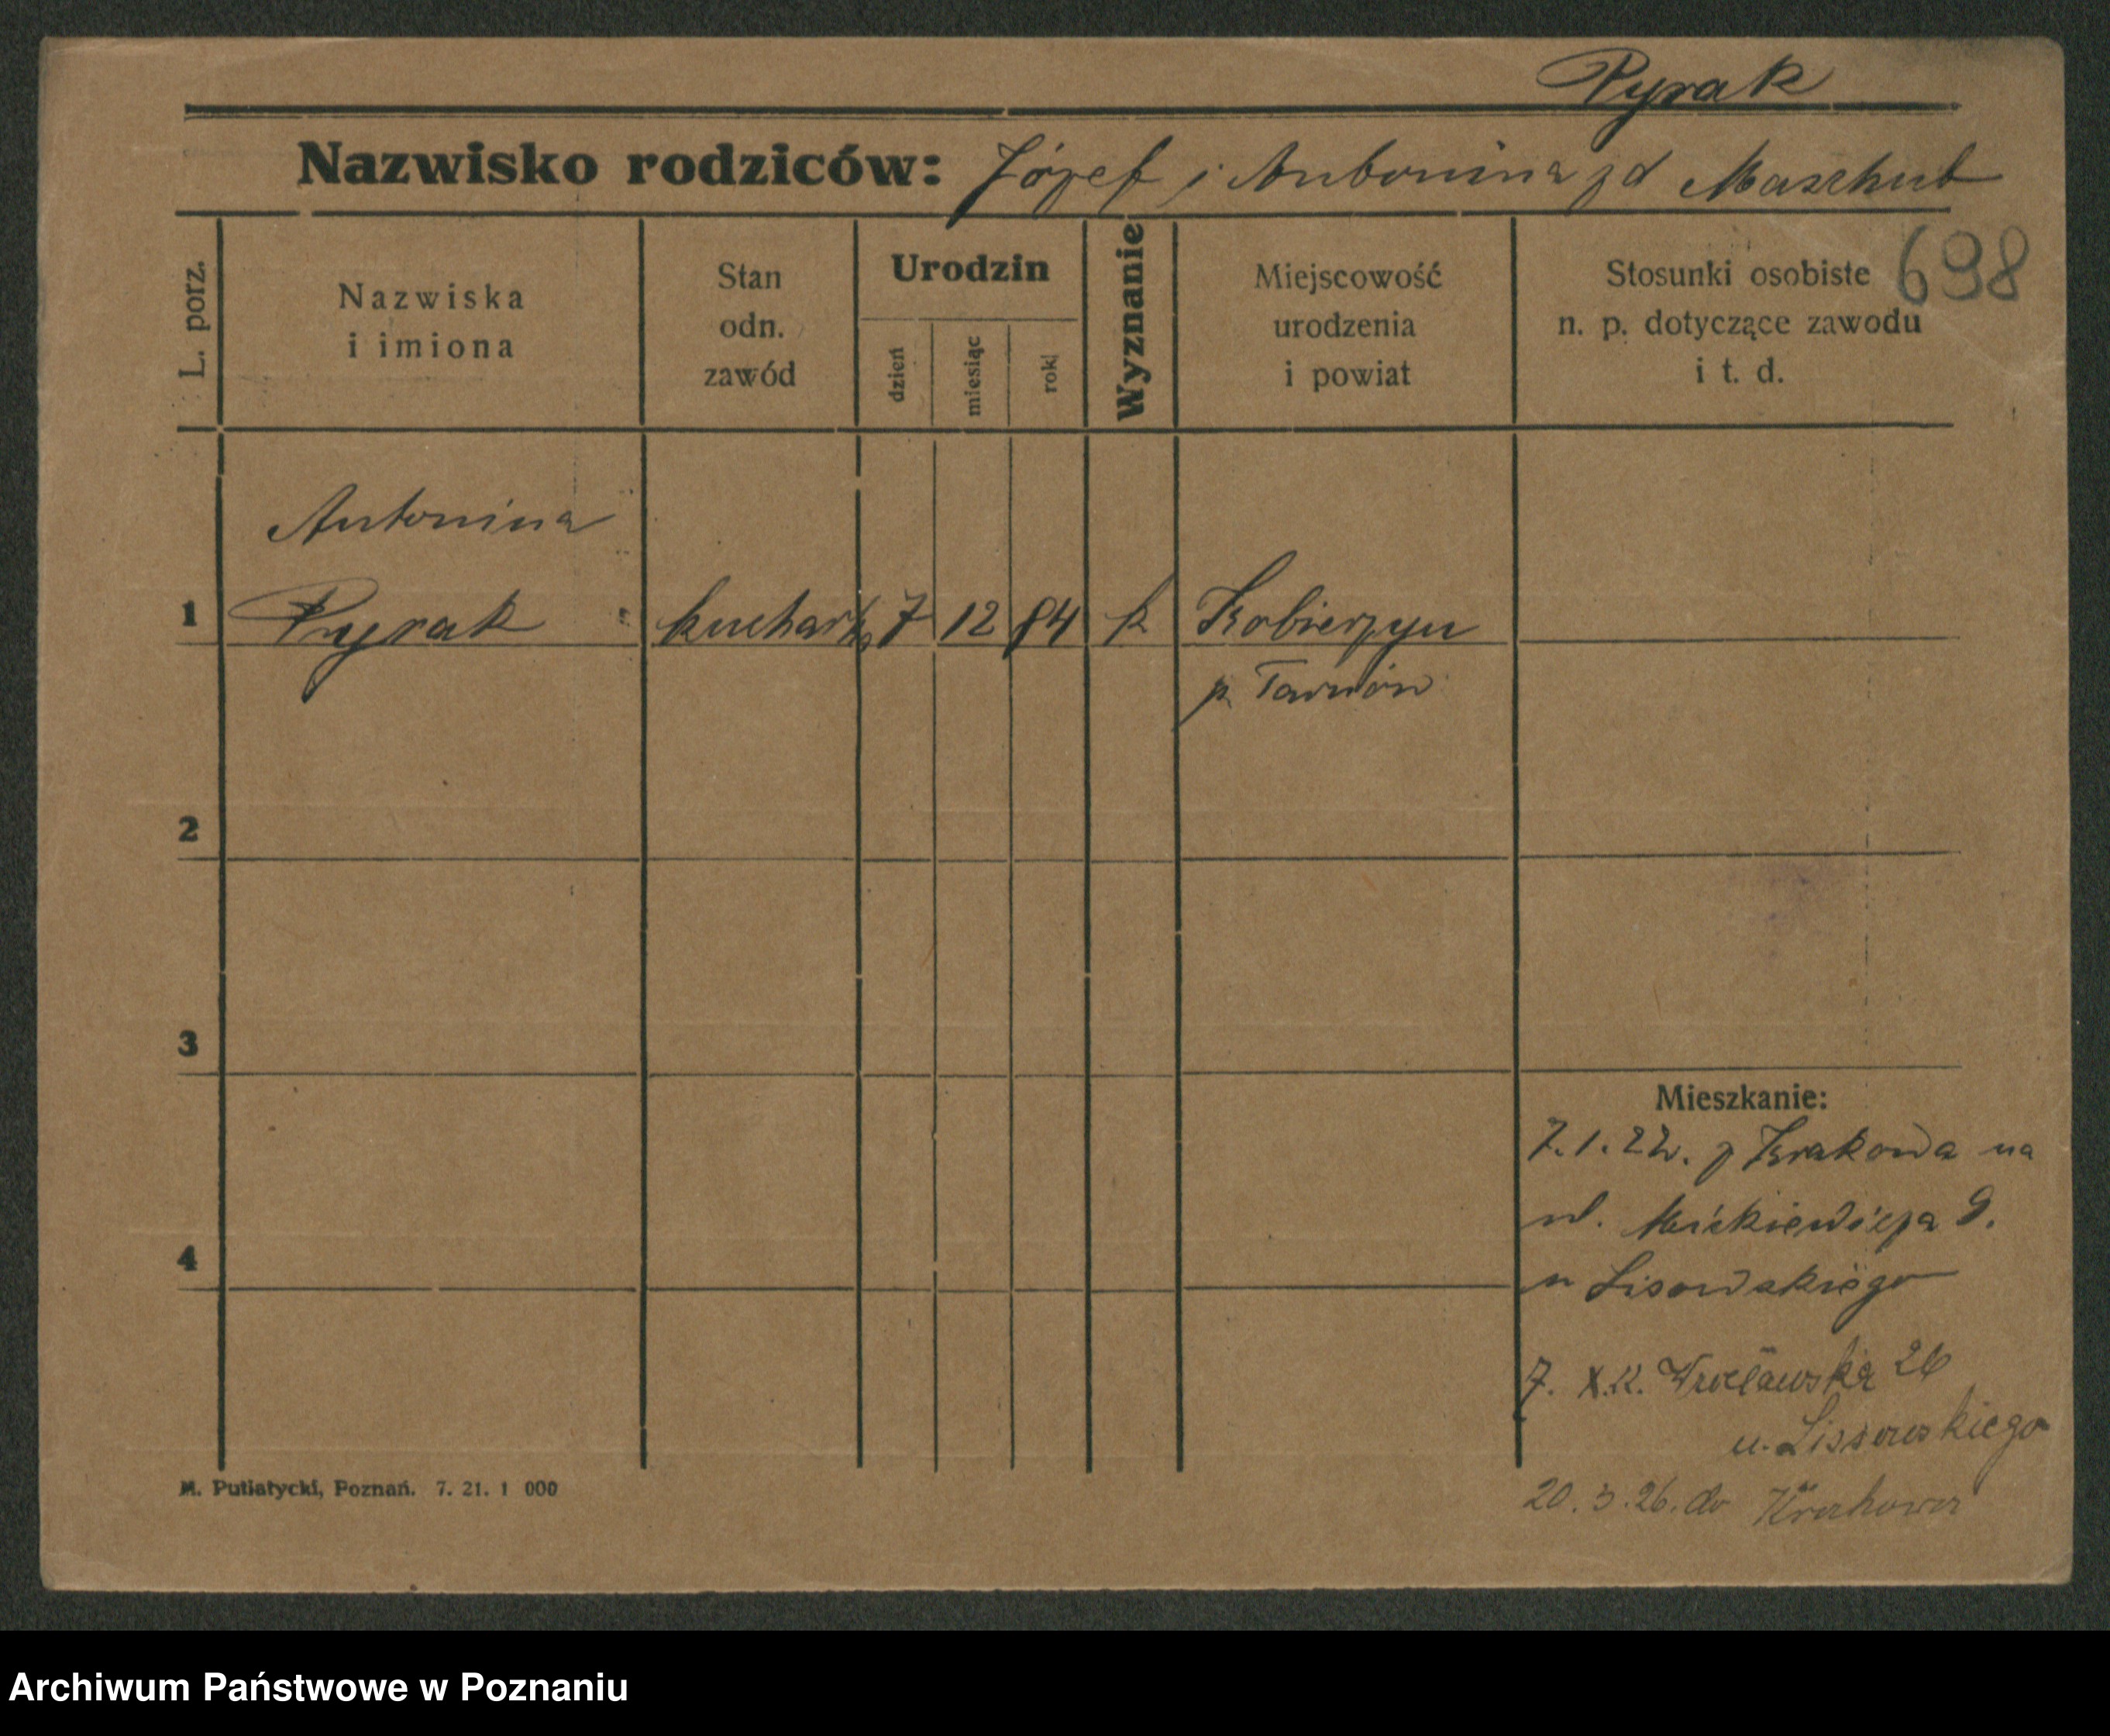 Pyrak
Nazwisko rodziców: Józef i Antonina zd Maschut
698
L. porz.
Nazwiska
i imiona
Stan
odn.
zawód
Urodzin
dzień
miesiąc
rok
Wyznanie
Miejscowość
urodzenia
i powiat
Stosunki osobiste
n. p. dotyczące zawodu
i t. d.
Antonina
1 Pyrak kucharka 7 12 84 k Kobierzyn
p. Tarnów
2
3
Mieszkanie:
7.1.22. z Krakowa na
ul. Mickiewicza 9.
4
u Lisowskiego
7. X. Wrocławska 26
u. Lissowskiego
20.3.26. do Krakowa
M. Putiatycki, Poznań. 7. 21. 1 000
Archiwum Państwowe w Poznaniu